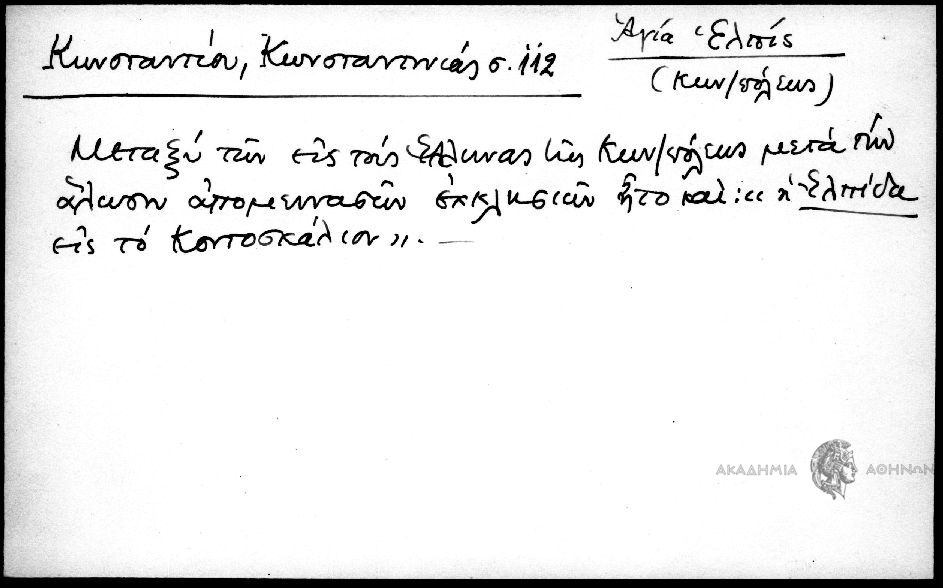 Κωνσταντίου, Κωνσταντινιάς σ. 112
Ἁγία Ἐλπίς
(Κων/πόλεως)
Μεταξύ τῶν εἰς τούς Ἕλληνας τῆς Κων/πόλεως μετά τήν
ἅλωσιν ἀπομεινασῶν ἐκκλησιῶν ἦτο καί: "ἡ Ἐλπίδα
εἰς τό Κοντοσκάλιον". —
ΑΚΑΔΗΜΙΑ ΑΘΗΝΩΝ